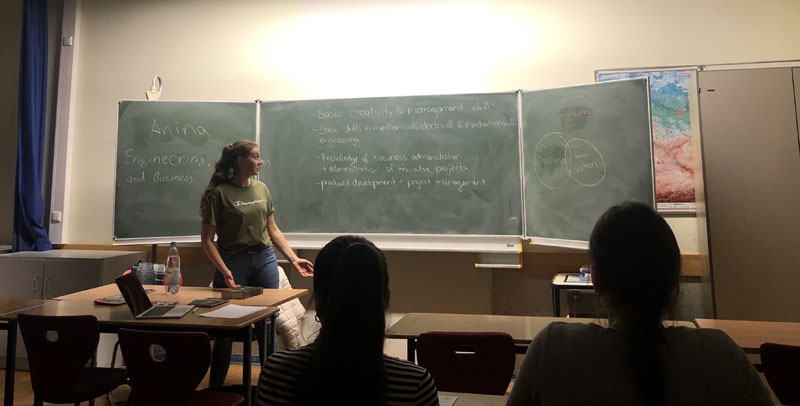 Anina
Engineering,
and Business
- Basic creativity & management skills
- Basic skills in mechanical, electrical & mechatronical
engineering
- Knowledge of business administration
+ administration of projects
- product development + project management
Champion